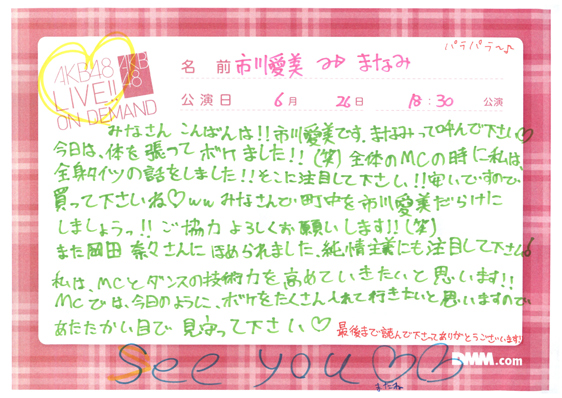 パラパラ〜♪
AKB48
LIVE!!
ON DEMAND
AKB
48
名 前 市川愛美 まなみ
公演日 6月 26日 18:30 公演
みなさん こんばんは!!市川愛美です。まなみって呼んで下さい♡
今日は、体を張って ボケました!!(笑)全体のMCの時に私は、
全身タイツの話をしました!!そこに注目して下さい!!安いですので
買って下さいね♡ww みなさんで町中を市川愛美だらけに
しましょうっ!! ご協力 よろしくお願いします!!(笑)
また岡田 奈々さんに ほめられました、純情主義にも注目して下さい
私は、MCとダンスの技術力を高めていきたいと思います!!
MCでは、今日のように、ボケをたくさん入れて行きたいと思いますので
あたたかい目で 見守って下さい♡
最後まで読んで下さってありがとうございます!
See you ♡♡
またね
DMM.com